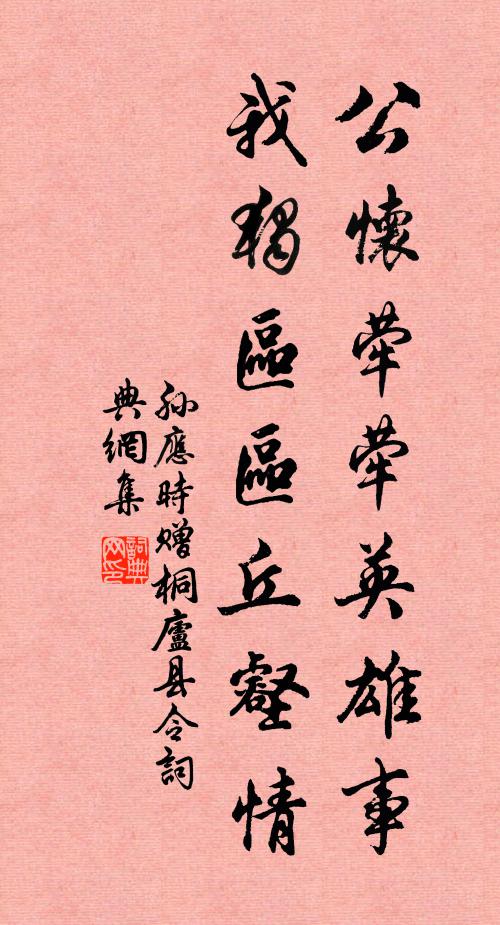 公懷犖犖英雄事
我獨區區丘壑情
孙應時贈桐廬县令詞
典網集
詞典
网